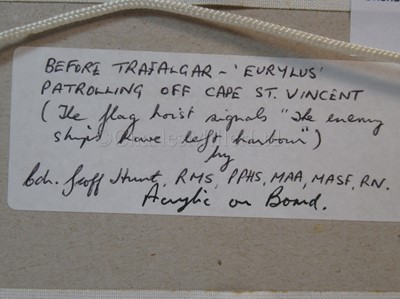 BEFORE TRAFALGAR - 'EURYLUS'
PATROLLING OFF CAPE ST. VINCENT
(The flag hoist signals "The enemy
ships have left harbour")
by
Cdr. Geoff Hunt, RMS, PPHS, MAA, MASF, RN.
Acrylic on Board.